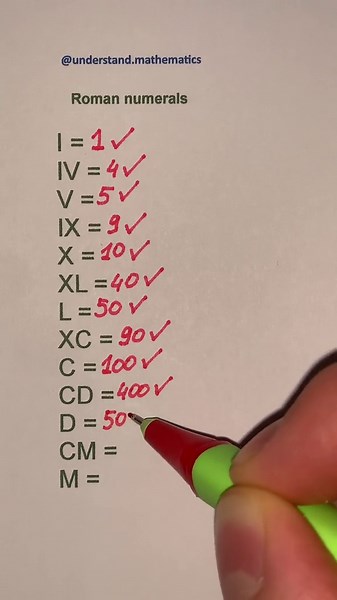 @understand.mathematics
Roman numerals
I = 1 ✓
IV = 4 ✓
V = 5 ✓
IX = 9 ✓
X = 10 ✓
XL = 40 ✓
L = 50 ✓
XC = 90 ✓
C = 100 ✓
CD = 400 ✓
D = 50
CM =
M =